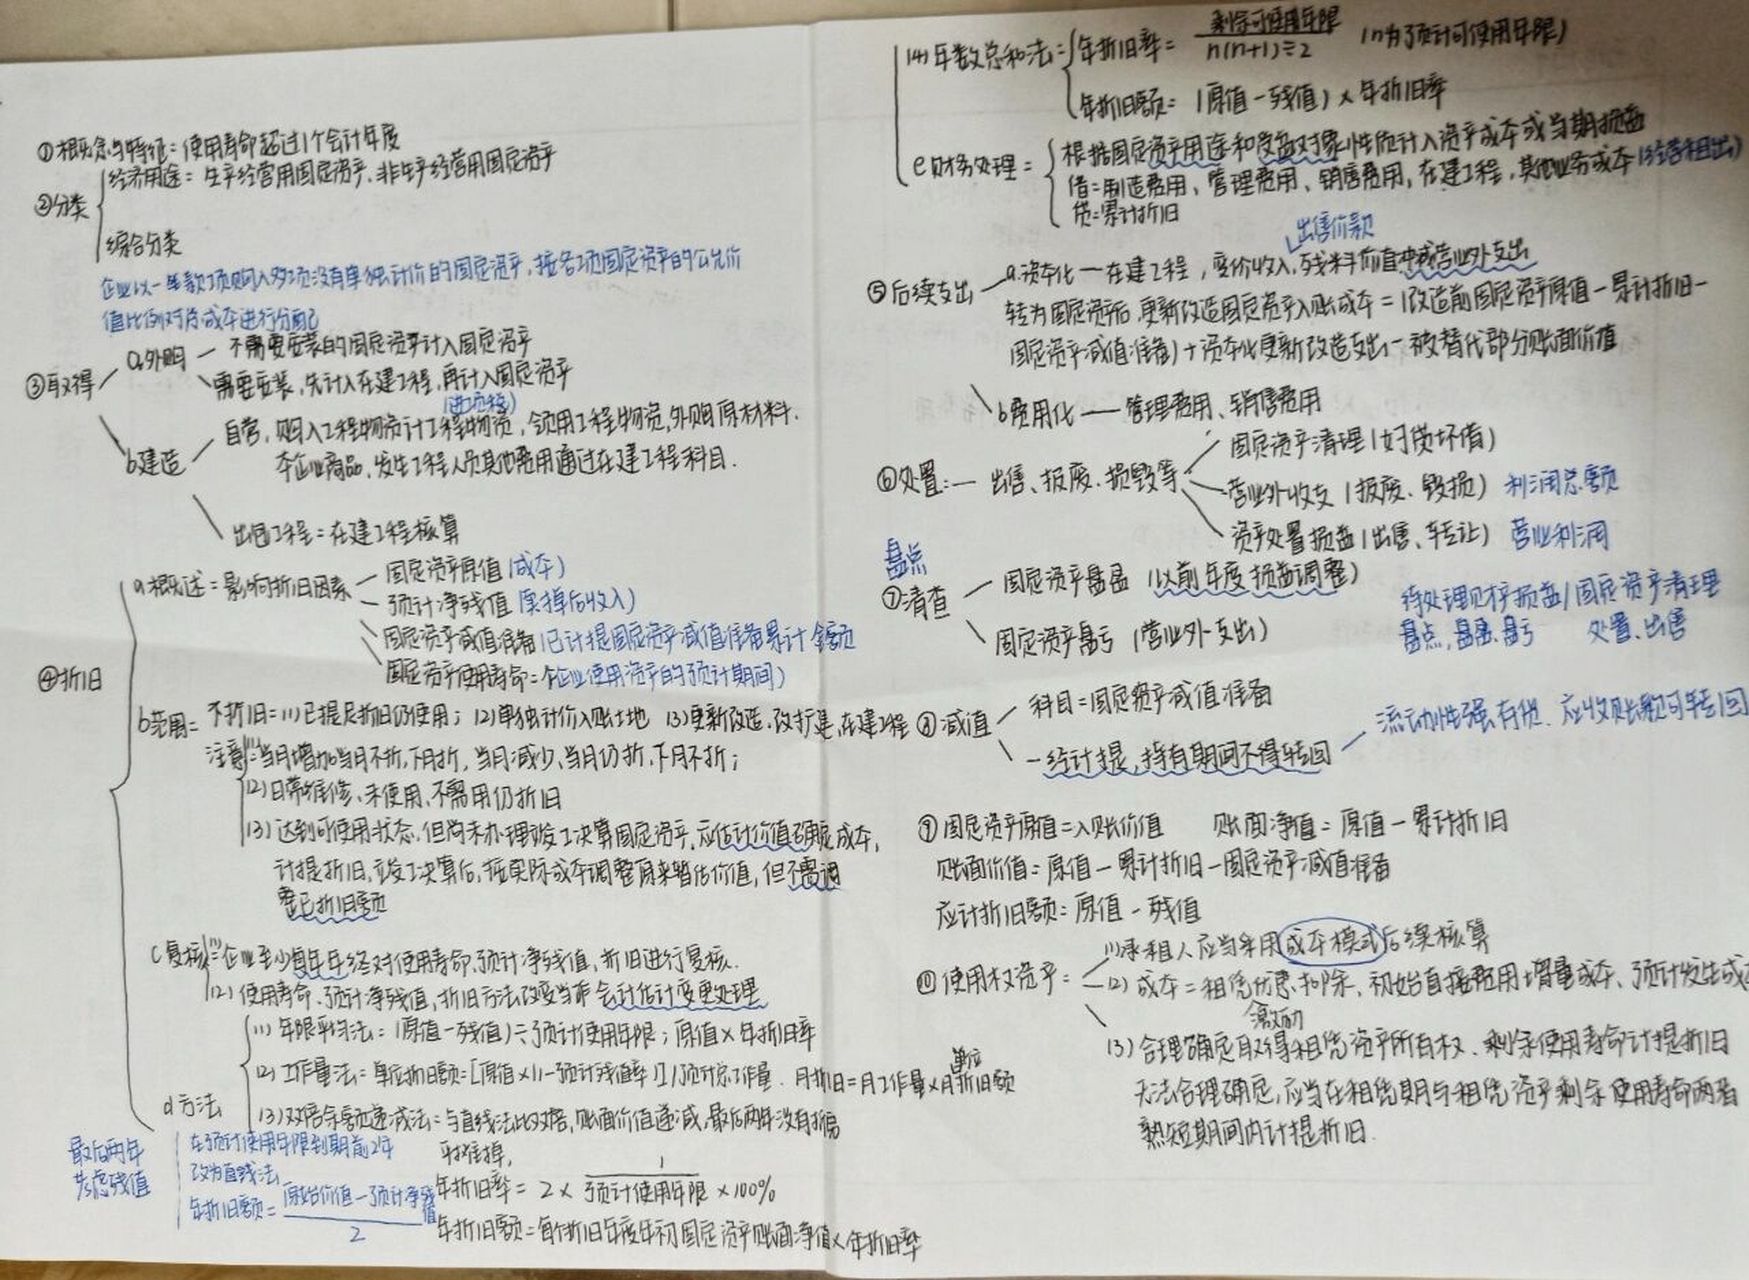 ①概念与特征:使用寿命超过1个会计年度
②分类
经济用途:生产经营用固定资产、非生产经营用固定资产
综合分类
企业以一笔款项购入多项没有单独计价的固定资产,按各项固定资产的公允价
值比例对总成本进行分配
③取得
a外购 — 不需要安装的固定资产计入固定资产
需要安装,先计入在建工程,再计入固定资产
(进项税)
b建造
自营,购入工程物资计工程物资,领用工程物资,外购原材料.
本企业商品,发生工程人员其他费用通过在建工程科目.
出包工程:在建工程核算
④折旧
a概述:影响折旧因素 — 固定资产原值(成本)
预计净残值(卖掉后收入)
固定资产减值准备(已计提固定资产减值准备累计金额)
固定资产使用寿命:(企业使用资产的预计期间)
b范围:不折旧:(1)已提足折旧仍使用;(2)单独计价入账土地 (3)更新改造、改扩建,在建工程
注意(1):当月增加当月不折,下月折,当月减少、当月仍折,下月不折;
(2)日常维修、未使用、不需用仍折旧
(3)达到可使用状态,但尚未办理竣工决算固定资产,应估计价值确定成本,
计提折旧,竣工决算后,按实际成本调整原来暂估价值,但不需调
整已折旧额
c复核(1):企业至少每年年终对使用寿命、预计净残值,折旧进行复核.
(2)使用寿命、预计净残值,折旧方法改变当作会计估计变更处理
d方法
(1)年限平均法:(原值-残值)÷预计使用年限;原值×年折旧率
(2)工作量法:单位折旧额=[原值×(1-预计残值率)]/预计总工作量.月折旧=月工作量×单位折旧额
(3)双倍余额递减法:与直线法比双倍,账面价值递减,最后两年没有折旧
平摊掉,
最后两年
考虑残值
在预计使用年限到期前2年
改为直线法
年折旧额=(原始价值-预计净残值)/2
年折旧率=2×1/预计使用年限×100%
年折旧额=每个折旧年度年初固定资产账面净值×年折旧率
(4)年数总和法:年折旧率=剩余可使用年限/n(n+1)÷2 (n为预计可使用年限)
年折旧额=(原值-残值)×年折旧率
e财务处理:根据固定资产用途和受益对象性质计入资产成本或当期损益
借:制造费用、管理费用、销售费用,在建工程,其他业务成本(经营租出)
贷:累计折旧
出售价款
⑤后续支出 — a.资本化 — 在建工程,变价收入,残料价值冲减营业外支出
转为固定资产后,更新改造固定资产入账成本=(改造前固定资产原值-累计折旧-
固定资产减值准备)+资本化更新改造支出-被替代部分账面价值
b费用化 — 管理费用、销售费用
⑥处置:— 出售、报废、损毁等
固定资产清理(好贷坏借)
营业外收支(报废、毁损) 利润总额
资产处置损益(出售、转让) 营业利润
盘点
⑦清查
固定资产盘盈(以前年度损益调整)
固定资产盘亏(营业外支出)
待处理财产损益/固定资产清理
盘点,盘盈、盘亏 处置、出售
⑧减值
科目:固定资产减值准备
一经计提,持有期间不得转回 — 流动性强存货、应收账款可转回
⑨固定资产原值=入账价值 账面净值=原值-累计折旧
账面价值=原值-累计折旧-固定资产减值准备
应计折旧额=原值-残值
⑩使用权资产:
(1)承租人应当采用成本模式后续核算
(2)成本=租赁优惠扣除、初始直接费用增量成本、预计发生成本
激励
(3)合理确定取得租赁资产所有权、剩余使用寿命计提折旧
无法合理确定,应当在租赁期与租赁资产剩余使用寿命两者
孰短期间内计提折旧.